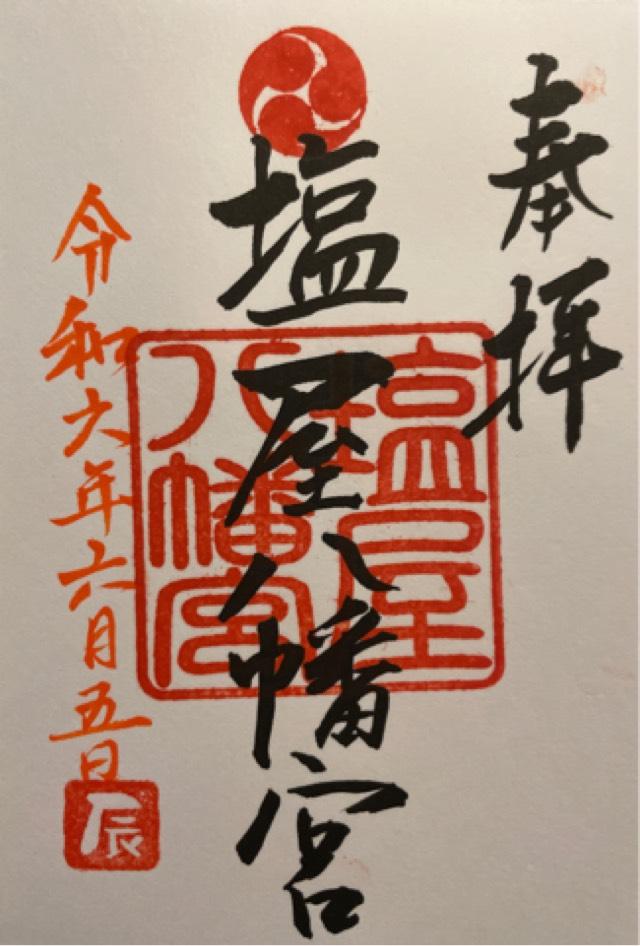 奉拝
塩屋八幡宮
塩屋
八幡宮
令和六年六月五日
辰